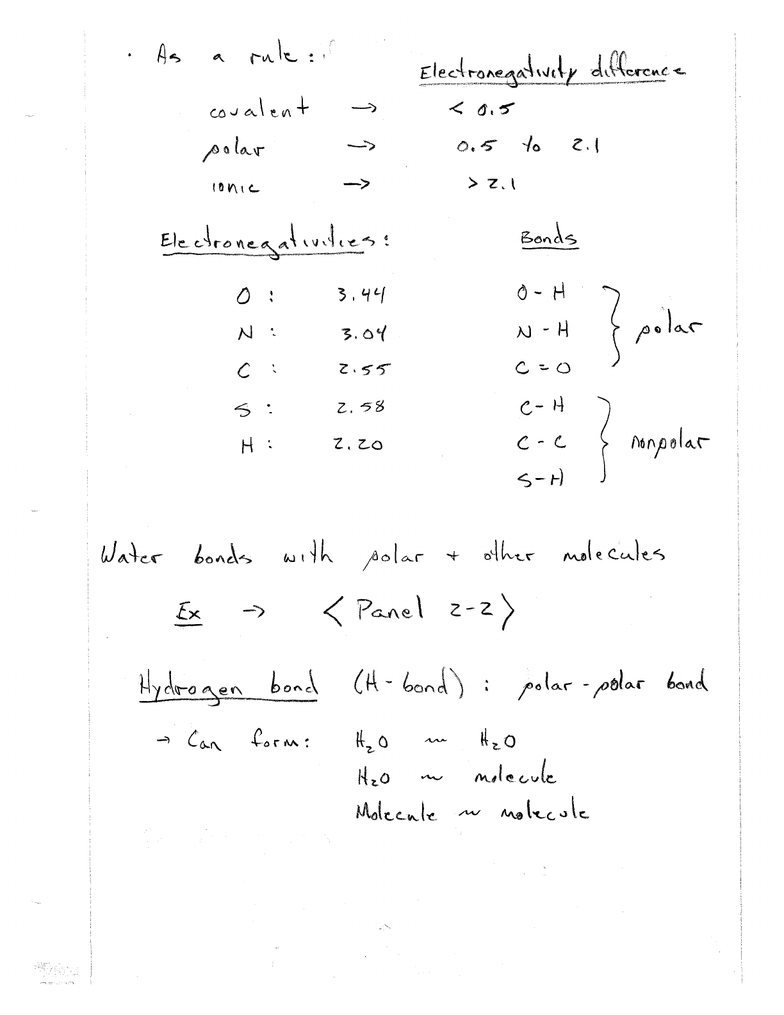 · As a rule:
Electronegativity difference
covalent → < 0.5
polar → 0.5 to 2.1
ionic → > 2.1
Electronegativities: Bonds
O : 3.44 O - H
N : 3.04 N - H } polar
C : 2.55 C = O
S : 2.58 C - H
H : 2.20 C - C } nonpolar
S - H
Water bonds with polar + other molecules
Ex → < Panel 2-2 >
Hydrogen bond (H-bond) : polar - polar bond
→ Can form: H₂O ~ H₂O
H₂O ~ molecule
Molecule ~ molecule